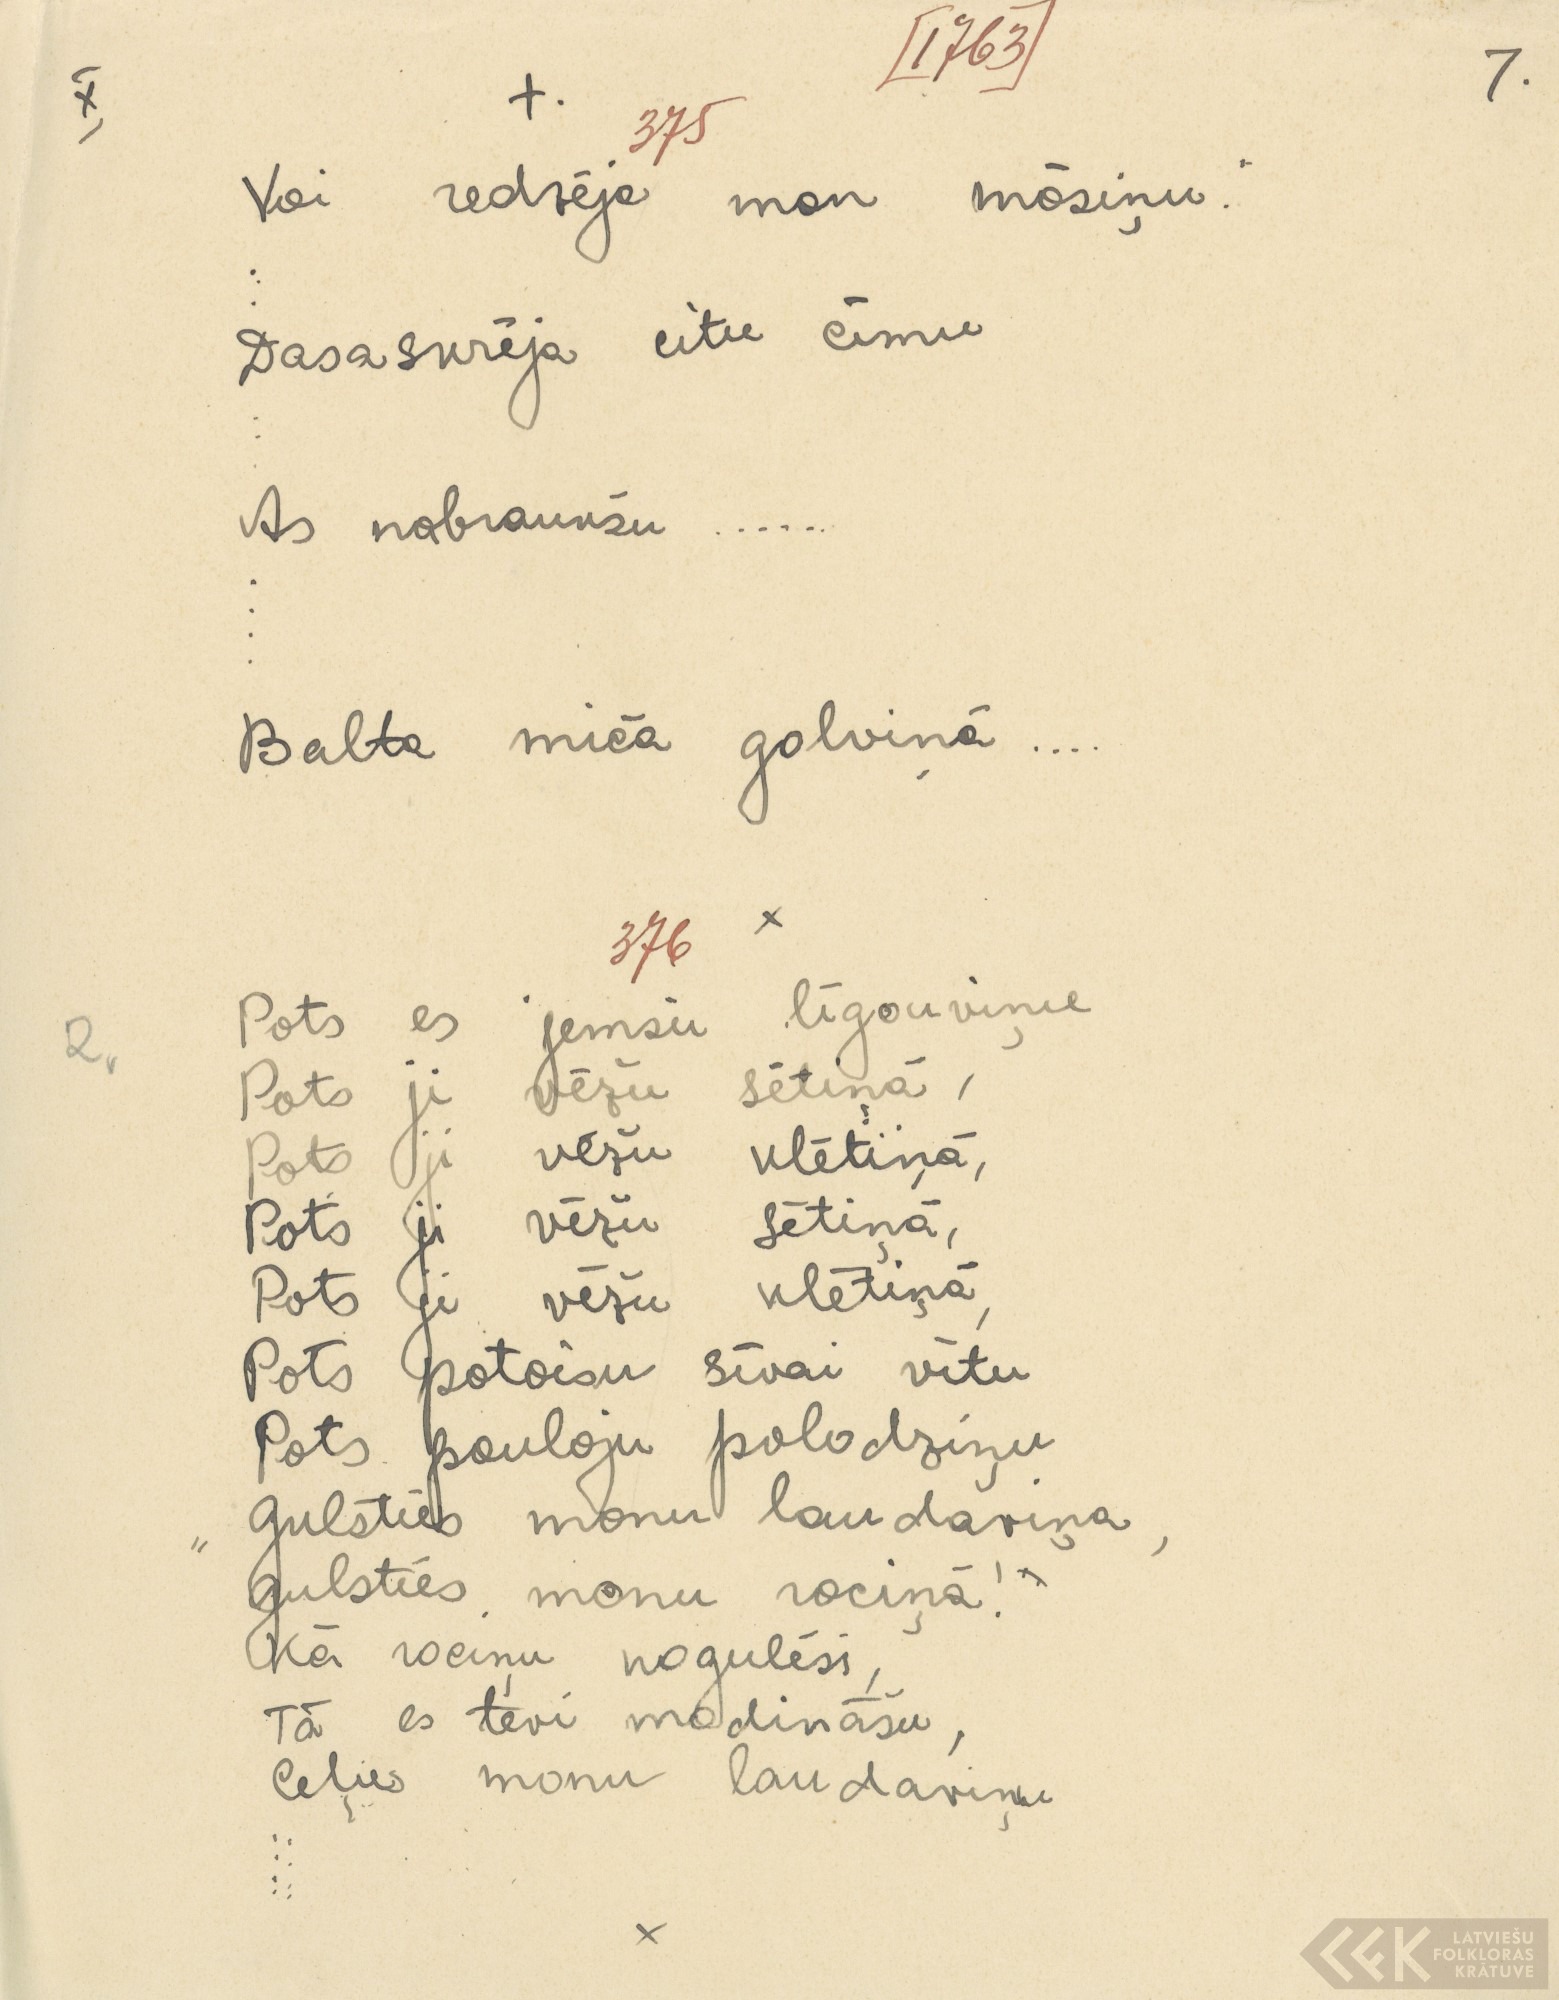 [1763]
7.
x̄,
+.
375
Voi redzēja mon mōsiņu.
Dasaskrēja citu cīmu
As nobraukšu ......
Balta miča golviņā ....
376 x
2.
Pots es jemšu līgouviņu
Pots ji vēžu sētiņā,
Pots ji vēžu klētiņā,
Pots ji vēžu sētiņā,
Pots ji vēžu klētiņā,
Pots potoisu sīvai vītu
Pots pouloju polodziņu
„Gulstiēs monu laudaviņa,
gulstiēs monu rociņā!"
Kā rociņu nogulēsi,
Tā es tevi modināšu,
Celies monu laudaviņu
x
LATVIEŠU
FOLKLORAS
KRĀTUVE